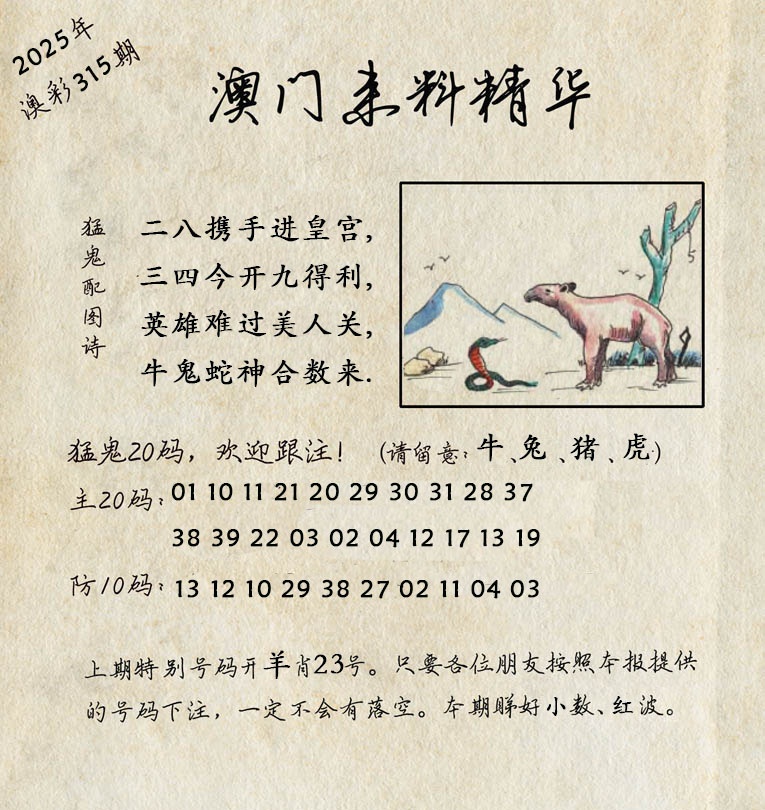 2025年
澳彩315期
澳门来料精华
猛鬼配图诗
二八携手进皇宫,
三四今开九得利,
英雄难过美人关,
牛鬼蛇神合数来.
5
猛鬼20码，欢迎跟注！（请留意：牛、兔、猪、虎）
主20码：01 10 11 21 20 29 30 31 28 37
38 39 22 03 02 04 12 17 13 19
防10码：13 12 10 29 38 27 02 11 04 03
上期特别号码开羊肖23号。只要各位朋友按照本报提供
的号码下注，一定不会有落空。本期睇好小数、红波。